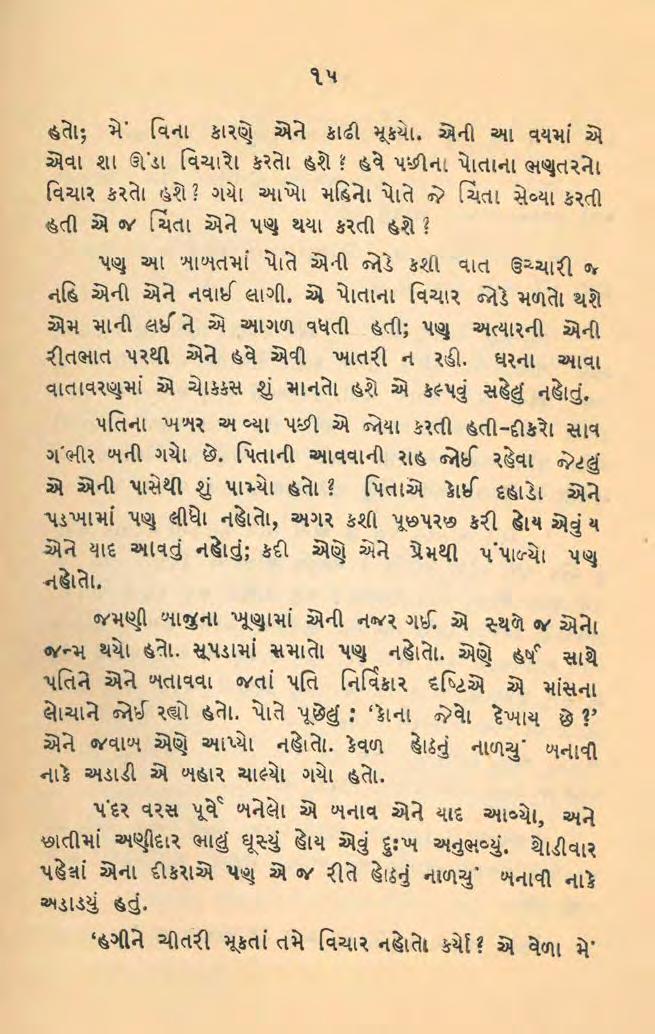 ૧૫
હતો; મેં વિના કારણે એને કાઢી મૂક્યો. એની આ વયમાં એ
એવા શા ઊંડા વિચારો કરતો હશે ? હવે પછીના પોતાના ભણુતરનો
વિચાર કરતો હશે ? ગયો આખો મહિનો પોતે જે ચિંતા સેવ્યા કરતી
હતી એ જ ચિંતા એને પણ થયા કરતી હશે ?
પણ આ બાબતમાં પોતે એની જોડે કશી વાત ઉચ્ચારી જ
નહિ એની એને નવાઈ લાગી. એ પોતાના વિચાર જોડે મળતો થશે
એમ માની લઈ ને એ આગળ વધતી હતી; પણ અત્યારની એની
રીતભાત પરથી એને હવે એવી ખાતરી ન રહી. ઘરના આવા
વાતાવરણમાં એ ચોક્કસ શું માનતો હશે એ કલ્પવું સહેલું નહોતું.
પતિના ખબર અ વ્યા પછી એ જોયા કરતી હતી–દીકરો સાવ
ગંભીર બની ગયો છે. પિતાની આવવાની રાહ જોઈ રહેવા જેટલું
એ એની પાસેથી શું પામ્યો હતો ? પિતાએ કોઈ દહાડો એને
પડખામાં પણ લીધો નહોતો, અગર કશી પૂછપરછ કરી હોય એવું ય
એને યાદ આવતું નહોતું; કદી એણે એને પ્રેમથી પંપાળ્યો પણ
નહોતો.
જમણી બાજુના ખૂણામાં એની નજર ગઈ. એ સ્થળે જ એનો
જન્મ થયો હતો. સૂપડામાં સમાતો પણ નહોતો. એણે હર્ષ સાથે
પતિને એને બતાવવા જતાં પતિ નિર્વિકાર દૃષ્ટિએ એ માંસના
લોચાને જોઈ રહ્યો હતો. પોતે પૂછેલું : ‘કોના જેવો દેખાય છે ?’
એને જવાબ એણે આપ્યો નહોતો. કેવળ હોઠનું નાળચું બનાવી
નાકે અડાડી એ બહાર ચાલ્યો ગયો હતો.
પંદર વરસ પૂર્વે બનેલો એ બનાવ એને યાદ આવ્યો, અને
છાતીમાં અણીદાર ભાલું ઘૂસ્યું હોય એવું દુઃખ અનુભવ્યું. થોડીવાર
પહેલાં એના દીકરાએ પણ એ જ રીતે હોઠનું નાળચું બનાવી નાકે
અડાડ્યું હતું.
‘હગીને ચીતરી મૂકતાં તમે વિચાર નહોતો કર્યો ? એ વેળા મેં